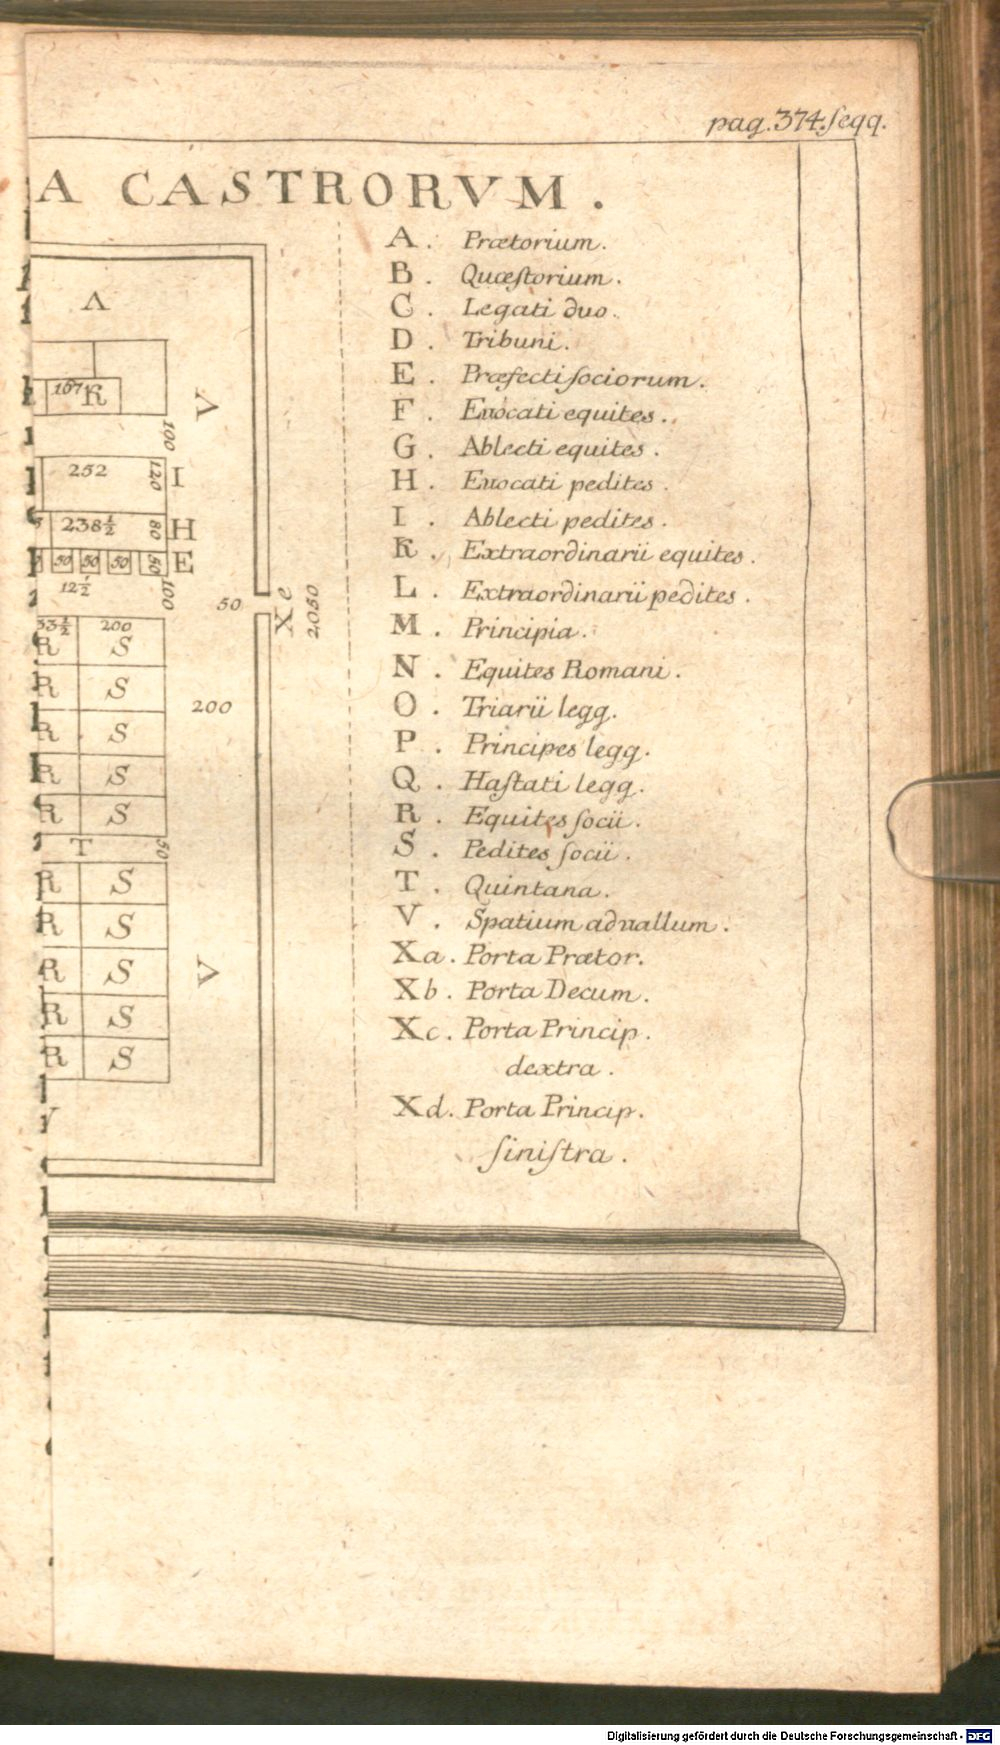 pag.374.ſeqq.
A CASTRORVM.
A
167 R
V
100
252
120
I
238½
80
H
50 50 50 50
E
12½
100
50
Xe
2050
33½ 200
R S
R S
200
R S
R S
R S
T
50
R S
R S
R S
V
R S
R S
V
A. Prætorium.
B. Quæſtorium.
C. Legati duo.
D. Tribuni.
E. Præfecti ſociorum.
F. Euocati equites.
G. Ablecti equites.
H. Euocati pedites.
I. Ablecti pedites.
K. Extraordinarii equites.
L. Extraordinarii pedites.
M. Principia.
N. Equites Romani.
O. Triarii legg.
P. Principes legg.
Q. Haſtati legg.
R. Equites ſocii.
S. Pedites ſocii.
T. Quintana.
V. Spatium ad vallum.
Xa. Porta Prætor.
Xb. Porta Decum.
Xc. Porta Princip.
dextra.
Xd. Porta Princip.
ſiniſtra.
Digitalisierung gefördert durch die Deutsche Forschungsgemeinschaft - DFG